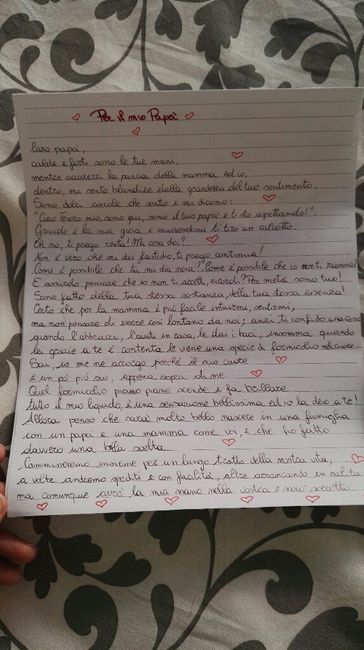 Per il mio Papà
Caro papà,
calde e forti sono le tue mani,
mentre accarezzi la pancia della mamma ed io,
dentro, mi sento blandire dalla grandezza del tuo sentimento.
Sono dolci coccole che sento e mi dicono:
"Ciao Tesoro mio, sono qui, sono il tuo papà e ti sto aspettando!".
Grande è la mia gioia e muovendomi ti tiro un calcetto.
Oh no, ti prego resta! Ma cosa dici?
Non è vero che mi dai fastidio, ti prego continua!
Come è possibile che tu mi dia noia? Come è possibile che io non ti
È assurdo pensare che io non ti accetti, ricordi? Per metà sono tuo!
Sono fatto della tua stessa sostanza, della tua stessa essenza!
Certo che per la mamma è più facile intuirmi, sentirmi,
ma non pensare di essere così lontano da noi; anzi ti confido una cosa
quando l'abbracci, l'aiuti in casa, le dai i baci, insomma, quando
lei grazie a te è contenta, le viene una specie di formicolio nel cuore...
Sai, io me ne accorgo perché il suo cuore
è un po' più su, appena sopra di me.
Quel formicolio piano piano scende e fa brillare
tutto il mio liquido, è una sensazione bellissima ed io la devo a te!
Allora penso che sarà molto bello nascere in una famiglia
con un papà e una mamma come voi, e che ho fatto
davvero una bella scelta.
Cammineremo insieme per un lungo tratto della nostra vita,
a volte andremo spediti e con facilità, altre arrancando in salita
ma comunque avrò la mia mano nella vostra e sarò accolto.